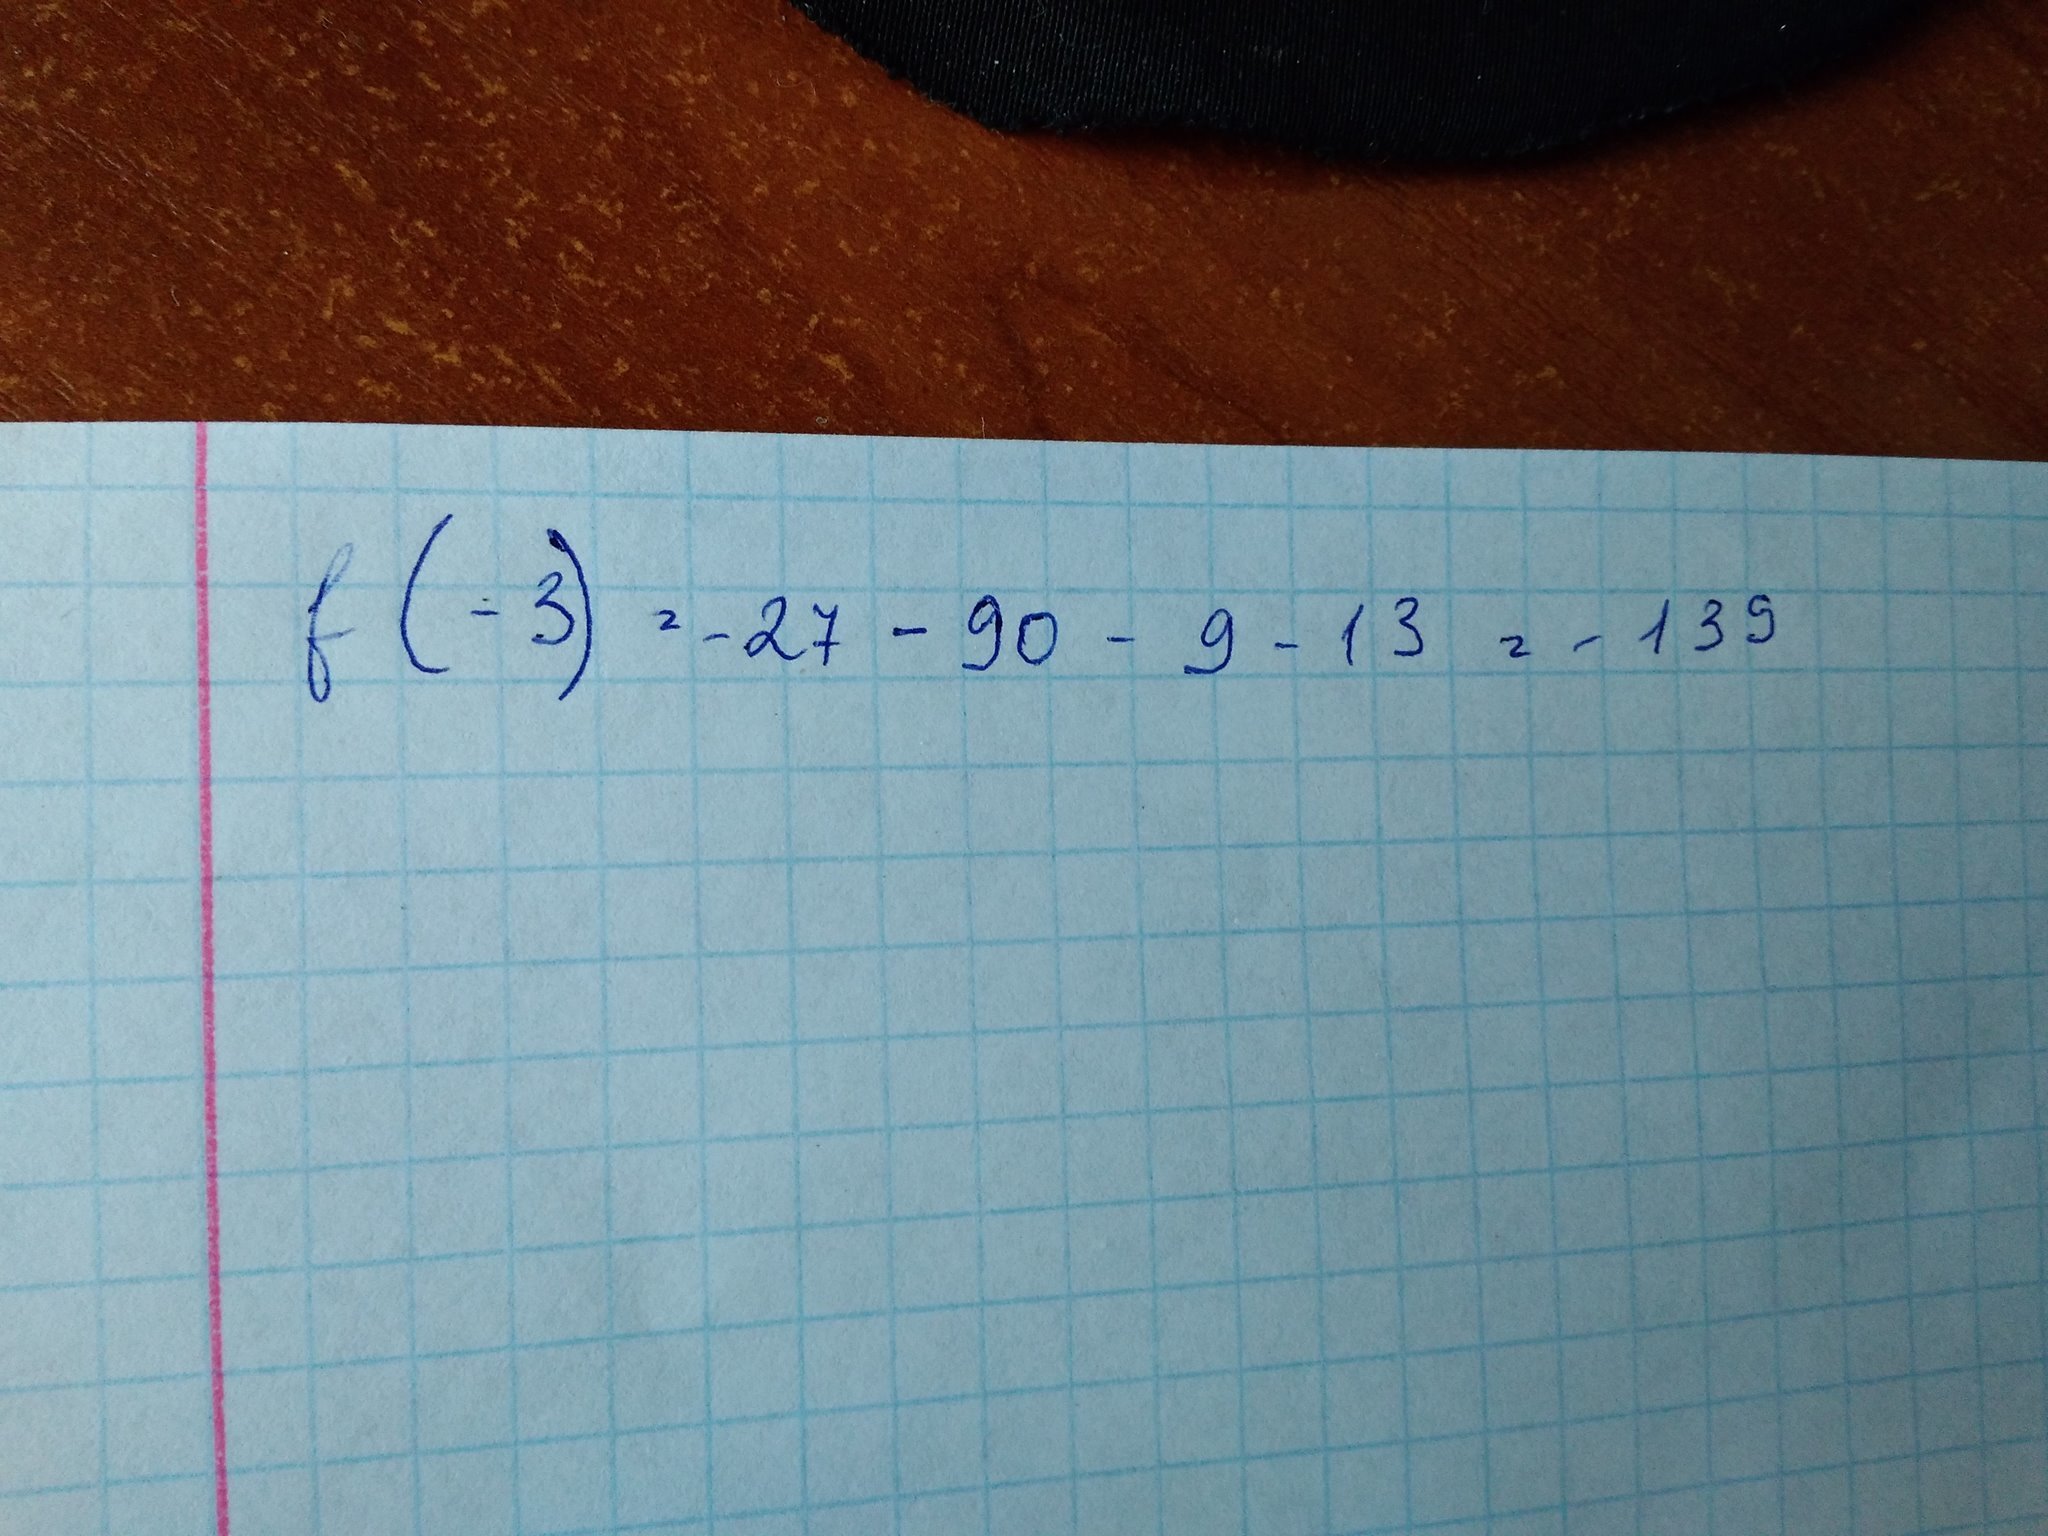 f (-3) = -27 - 90 - 9 - 13 = - 139